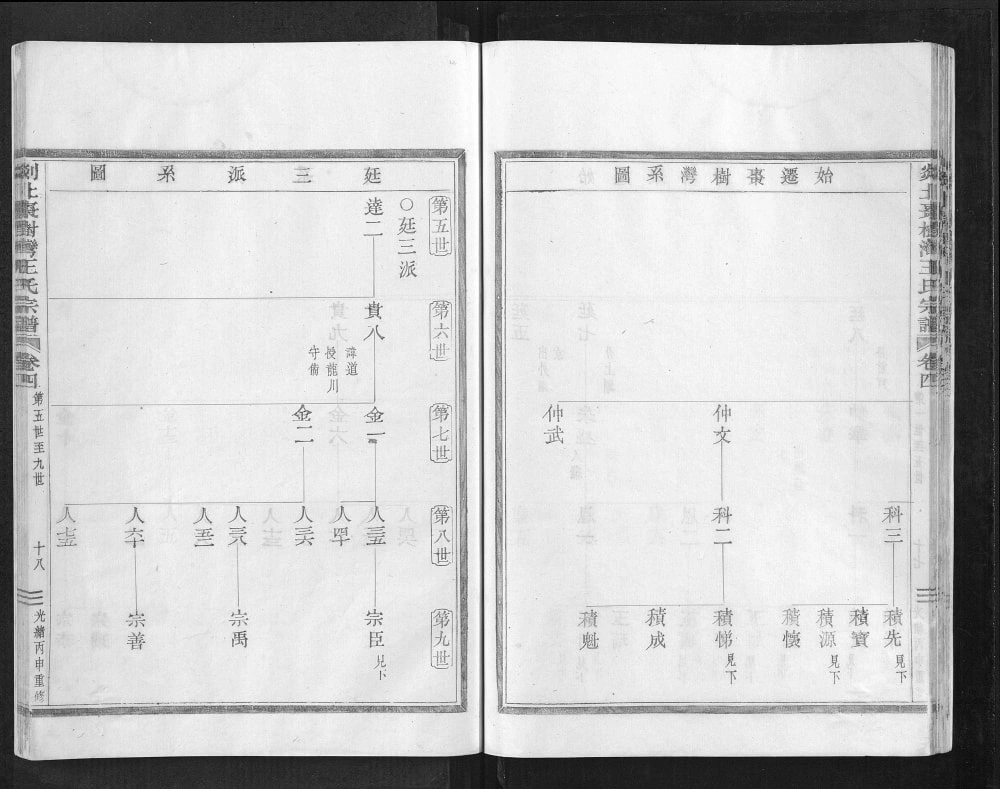 始遷棗樹灣系圖
仲文
仲武
科三
科二
積先 見下
積寳
積源 見下
積懐
積悌 見下
積成
積魁
剡北棗樹灣王氏宗譜
卷四
廷三派系圖
第五世
○廷三派
達二
第六世
貴八
諱道
授龍川
守備
第七世
金一
金二
第八世
人三五
人四十
人三六
人三八
人五三
人六十
第九世
宗臣 見下
宗禹
宗善
剡北棗樹灣王氏宗譜
卷四
第五世至九世
十八
光緒丙申重修